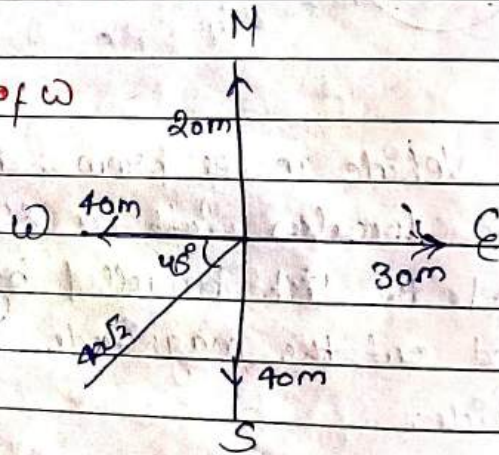 N
of W
20m
W 40m E
45°
30m
40√2
40m
S